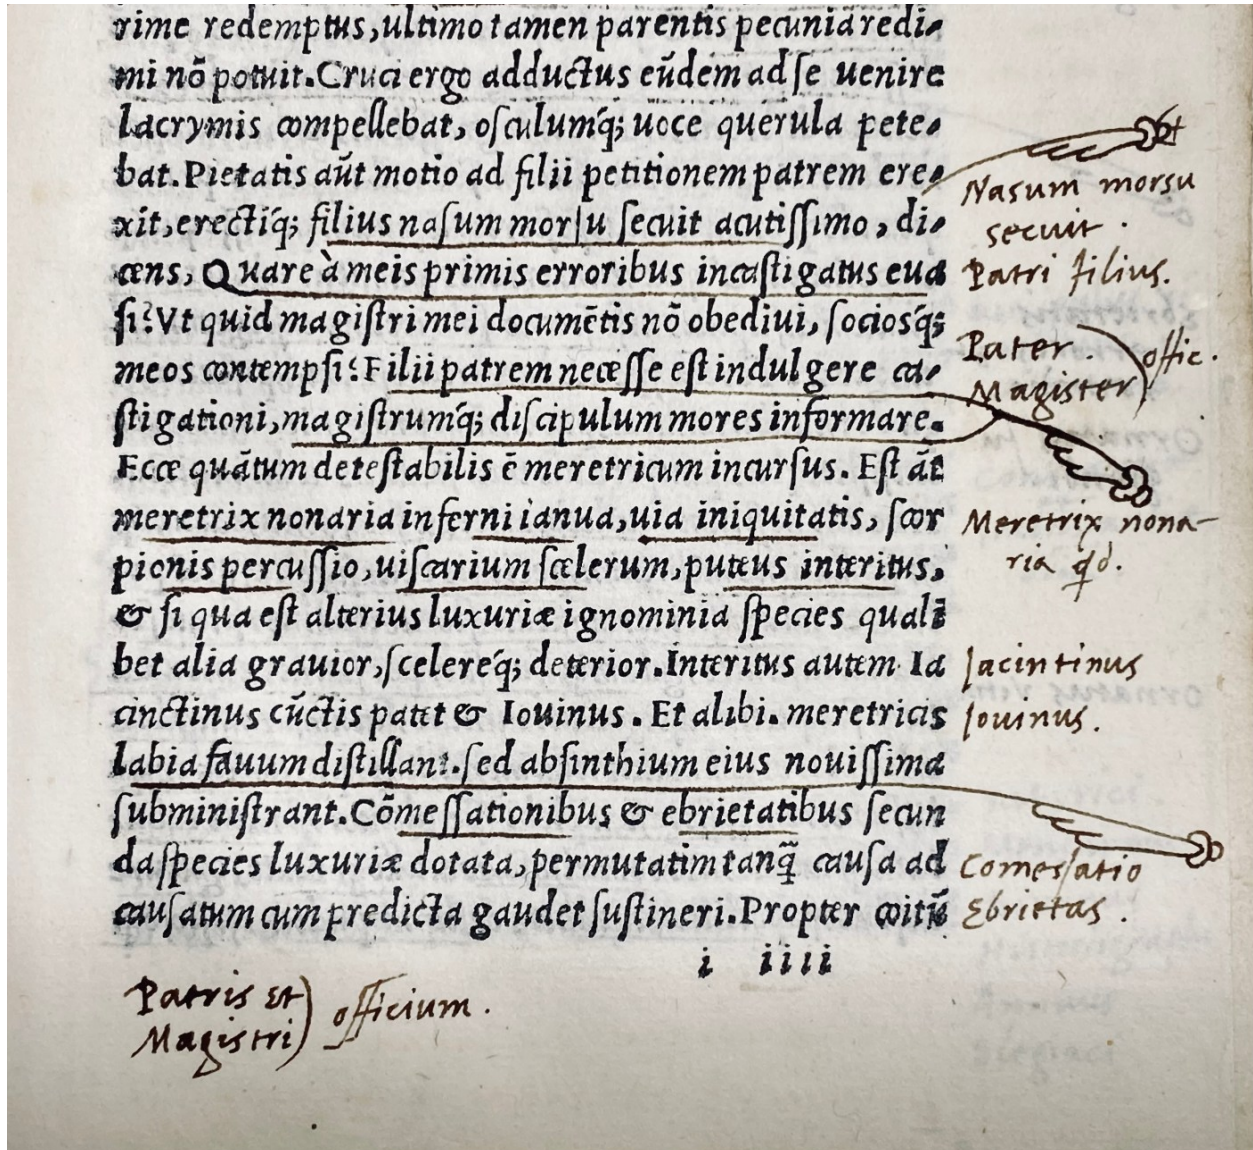 rime redemptus, ultimo tamen parentis pecunia redi-
mi nõ potuit. Cruci ergo adductus eũdem ad se uenire
lacrymis compellebat, osculumq́; uoce querula pete-
bat. Pietatis aũt motio ad filii petitionem patrem ere-
xit, erectiq́; filius nasum morsu secuit acutissimo, di-
cens, Quare à meis primis erroribus incastigatus eua
si? Vt quid magistri mei documẽtis nõ obediui, sociosq́;
meos contempsi? Filii patrem necesse est indulgere ca-
stigationi, magistrumq́; discipulum mores informare.
Ecce quãtum detestabilis ẽ meretricum incursus. Est ãt
meretrix nonaria inferni ianua, uia iniquitatis, scor
pionis percussio, uiscarium scelerum, puteus interitus,
& si qua est alterius luxuriæ ignominia species quali
bet alia grauior, scelereq́; deterior. Interitus autem Ia
cinctinus cũctis patet & Iouinus. Et alibi. meretricis
labia fauum distillant. sed absinthium eius nouissima
subministrant. Cõmessationibus & ebrietatibus secun
da species luxuriæ dotata, permutatim tanq̃ causa ad
causatum cum predicta gaudet sustineri. Propter coitũ
i iiii
Nasum morsu
secuit .
Patri filius.
Pater .
Magister
offic.
Meretrix nona-
ria qd.
Jacintinus
Jouinus.
Comessatio
Ebrietas .
Patris et
Magistri
officium .